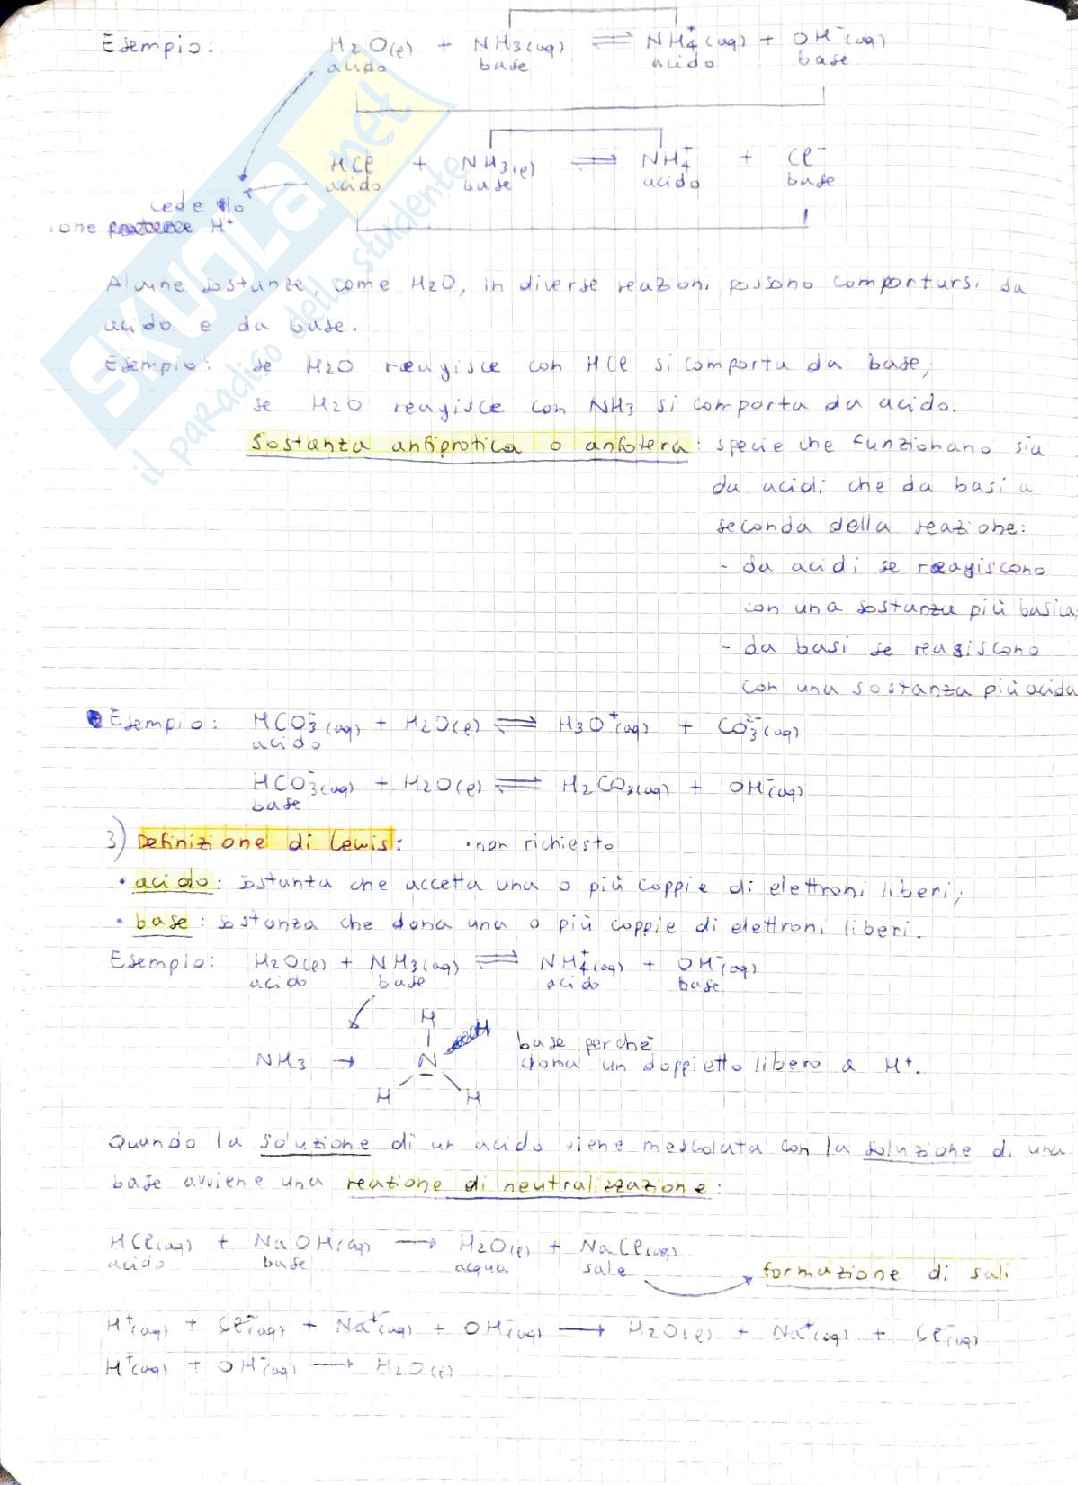 Esempio: H₂O(l) + NH₃(aq) ⇌ NH₄⁺(aq) + OH⁻(aq)
acido base acido base
HCl + NH₃(l) ⇌ NH₄⁺ + Cl⁻
acido base acido base
cede
ione H⁺
Alcune sostanze come H₂O, in diverse reazioni possono comportarsi da
acido e da base.
Esempio: se H₂O reagisce con HCl si comporta da base;
se H₂O reagisce con NH₃ si comporta da acido.
Sostanza anfiprotica o anfotera: specie che funzionano sia
da acidi che da basi a
seconda della reazione:
- da acidi se reagiscono
con una sostanza più basica;
- da basi se reagiscono
con una sostanza più acida
Esempio: HCO₃⁻(aq) + H₂O(l) ⇌ H₃O⁺(aq) + CO₃²⁻(aq)
acido
HCO₃⁻(aq) + H₂O(l) ⇌ H₂CO₃(aq) + OH⁻(aq)
base
3) Definizione di Lewis: •non richiesto
• acido: sostanza che accetta una o più coppie di elettroni liberi;
• base: sostanza che dona una o più coppie di elettroni liberi.
Esempio: H₂O(l) + NH₃(aq) ⇌ NH₄⁺(aq) + OH⁻(aq)
acido base acido base
H
NH₃ → N H base perché
dona un doppietto libero a H⁺.
H H
Quando la soluzione di un acido viene mescolata con la soluzione di una
base avviene una reazione di neutralizzazione:
HCl(aq) + NaOH(aq) → H₂O(l) + NaCl(aq)
acido base acqua sale formazione di sali
H⁺(aq) + Cl⁻(aq) + Na⁺(aq) + OH⁻(aq) → H₂O(l) + Na⁺(aq) + Cl⁻(aq)
H⁺(aq) + OH⁻(aq) → H₂O(l)
SKUOLA.net
il paradiso dello studente